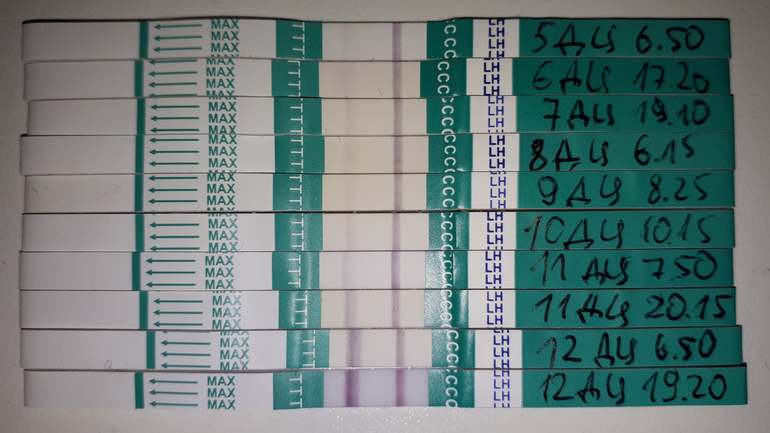 MAX MAX MAX TTT CCC LH LH LH 5 ДЦ 6.50
MAX MAX MAX TTT CCC LH LH LH 6 ДЦ 17.20
MAX MAX MAX TTT CCC LH LH LH 7 ДЦ 19.10
MAX MAX MAX TTT CCC LH LH LH 8 ДЦ 6.15
MAX MAX MAX TTT CCC LH LH LH 9 ДЦ 8.25
MAX MAX MAX TTT CCC LH LH LH 10 ДЦ 10.15
MAX MAX MAX TTT CCC LH LH LH 11 ДЦ 7.50
MAX MAX MAX TTT CCC LH LH LH 11 ДЦ 20.15
MAX MAX MAX TTT CCC LH LH LH 12 ДЦ 6.50
MAX MAX MAX TTT CCC LH LH LH 12 ДЦ 19.20